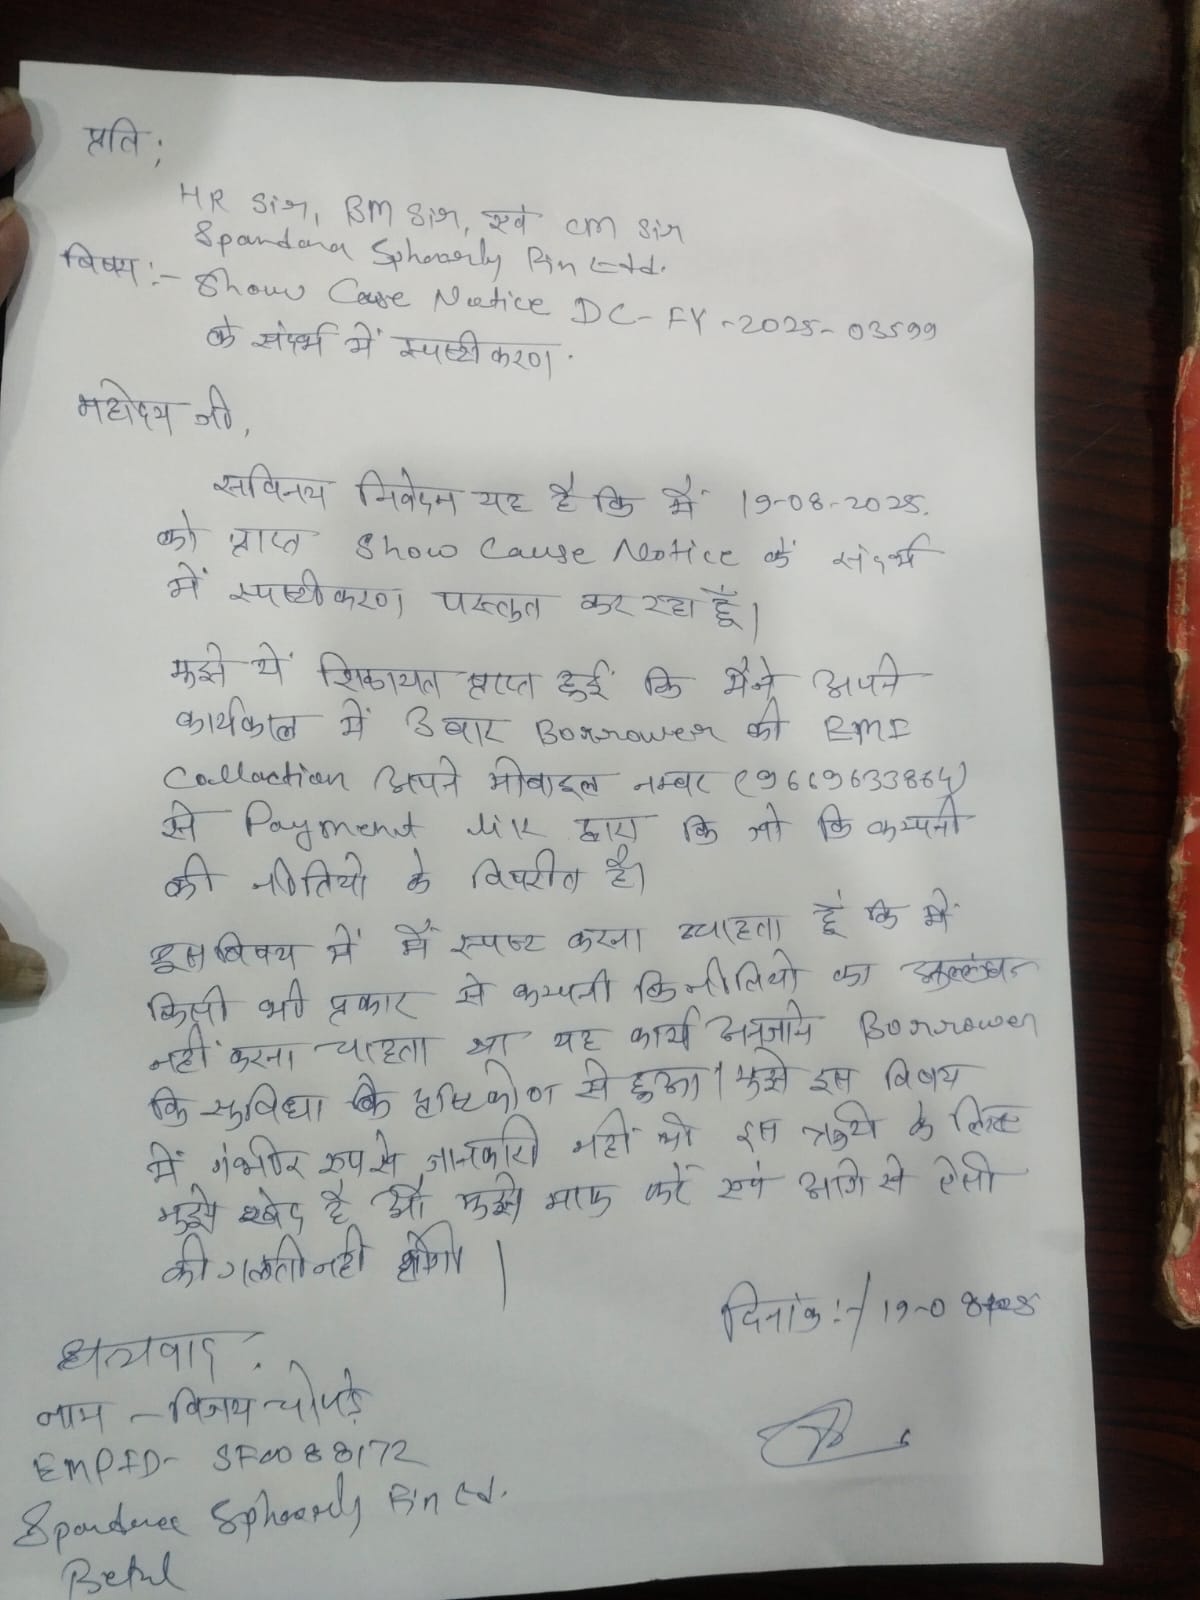 प्रति;
HR Sir, BM Sir, एवं CM Sir
Spandana Sphoorty Fin Ltd.
विषय:- Show Case Notice DC-FY-2025-03599
के संदर्भ में स्पष्टीकरण.
महोदय जी,
सविनय निवेदन यह है कि मैं 19-08-2025.
को प्राप्त Show Cause Notice के संदर्भ
में स्पष्टीकरण प्रस्तुत कर रहा हूँ।
मुझे ये शिकायत प्राप्त हुई कि मैने अपने
कार्यकाल में 3 बार Borrower की EMI
Collaction अपने मोबाइल नम्बर (9669633864)
से Payment द्वारा कि जो कि कम्पनी
की नीतियो के विपरीत है।
इस विषय में मैं स्पष्ट करना चाहता हूं कि में
किसी भी प्रकार से कम्पनी कि नीतियो का उल्लंघन
नहीं करना चाहता था यह कार्य अनजाने Borrower
कि सुविधा के दृष्टिकोण से हुआ। मुझे इस विषय
में गंभीर रूप से जानकारी नहीं थी इस त्रुटि के लिए
मुझे खेद है और मुझे माफ करें एवं आगे से ऐसी
की गलती नही होगी।
दिनांक:-/19-08-25
धन्यवाद.
नाम - विजय चोपड़े
EMPID- SF0088172
Spandana Sphoorty Fin Ltd.
Betul